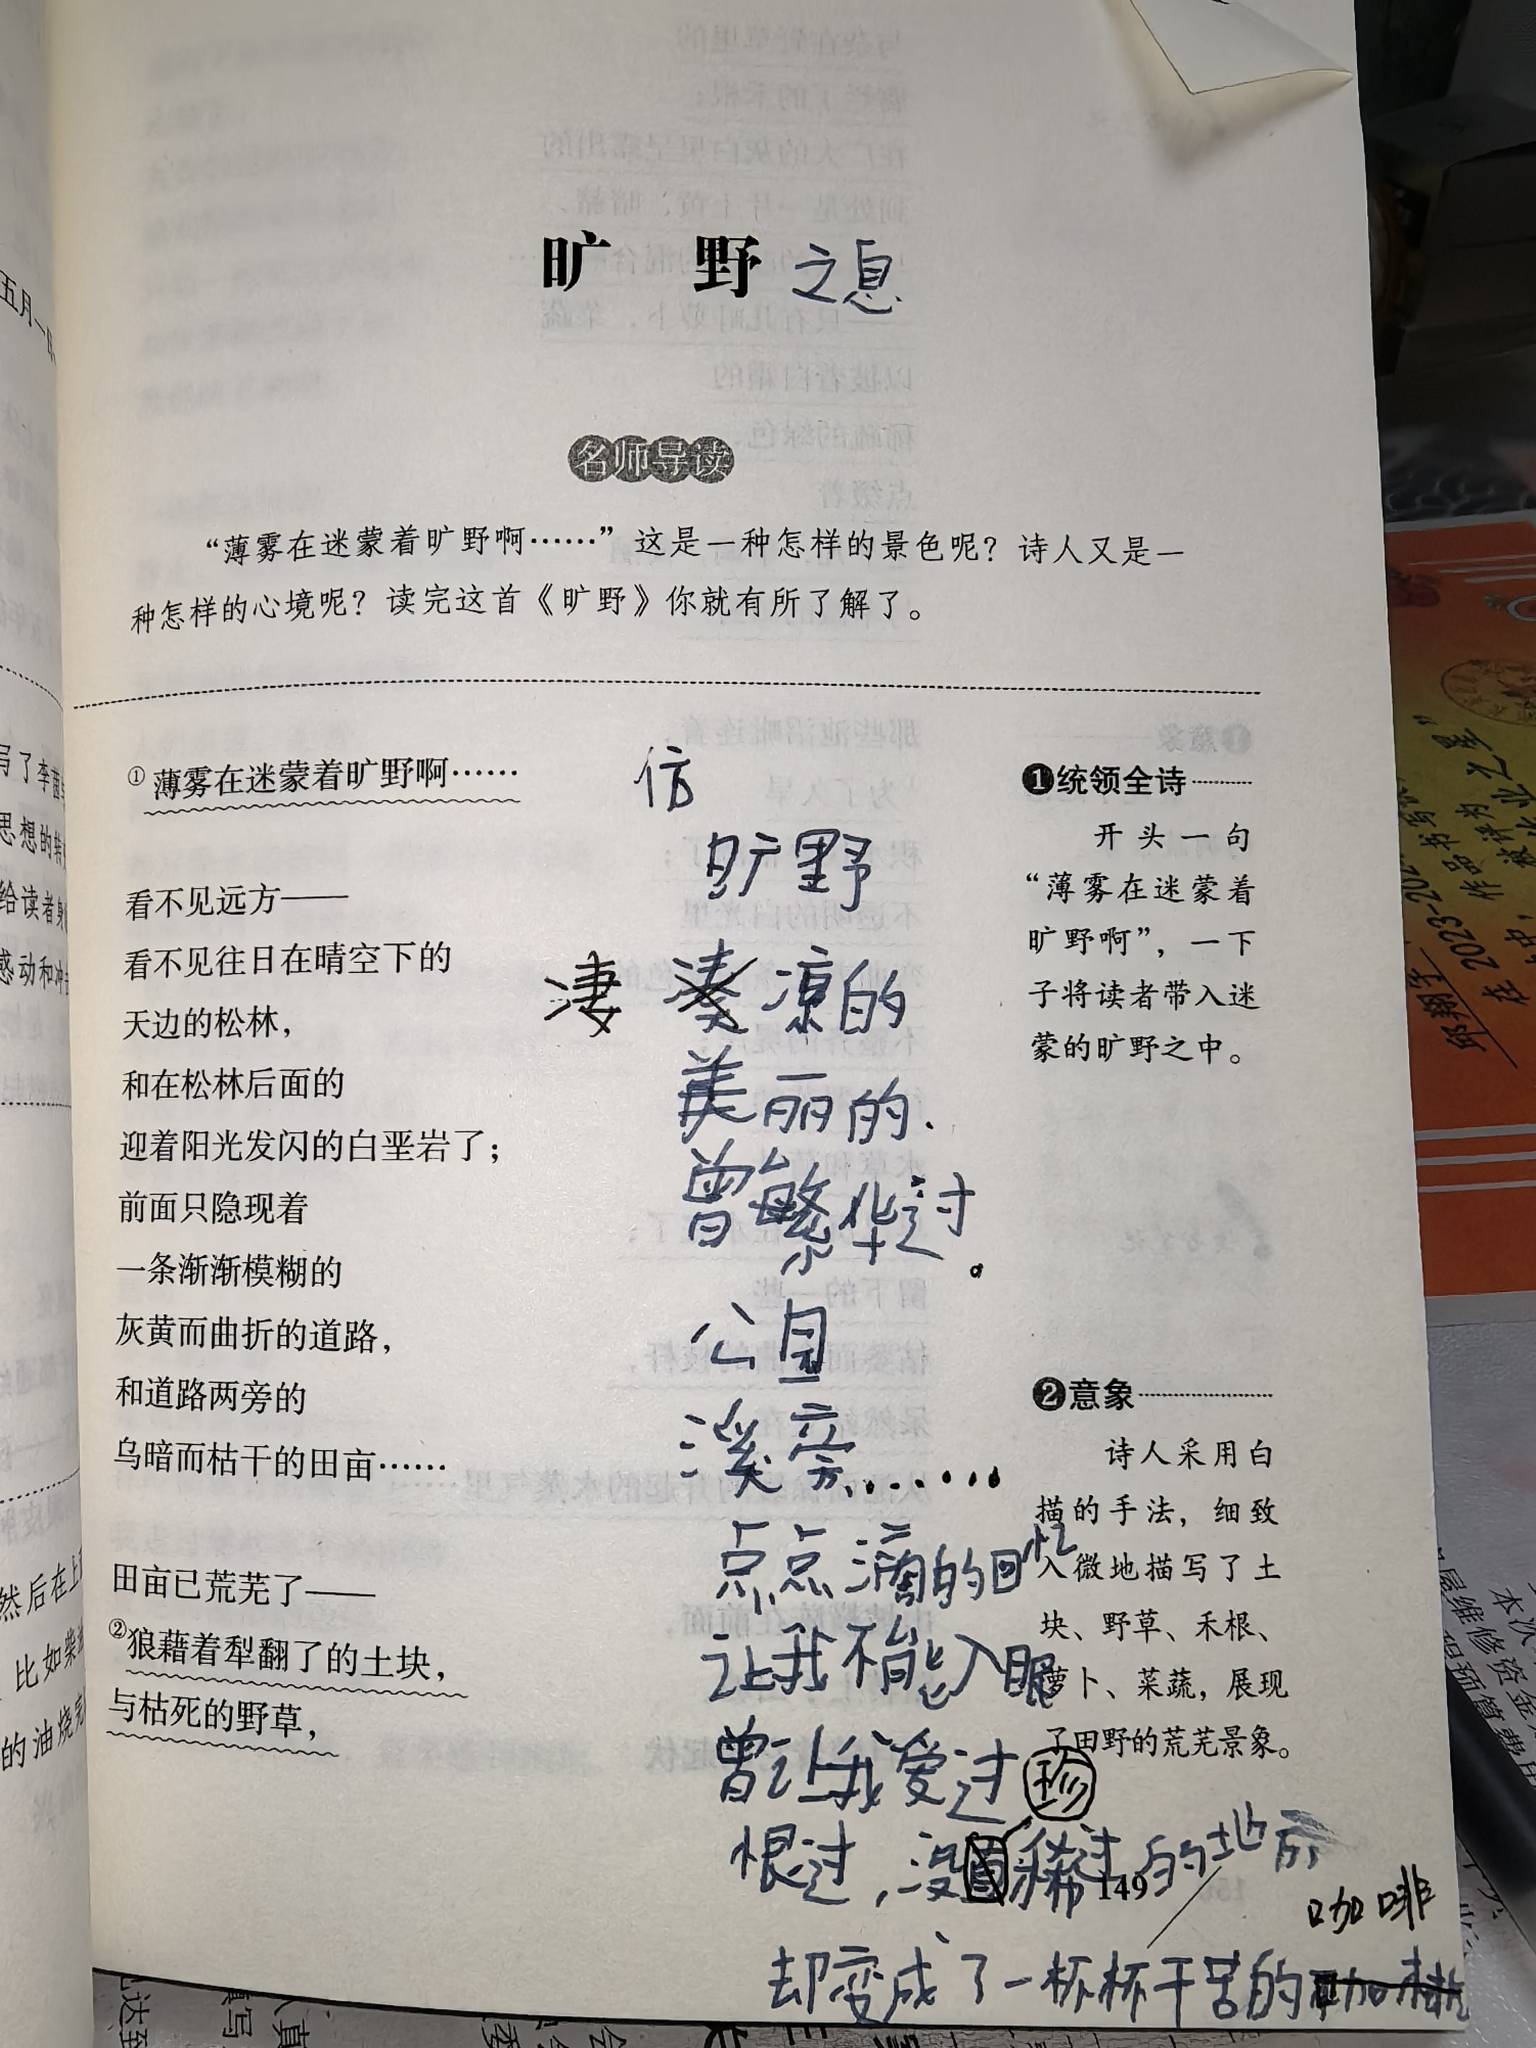 旷 野 之息
名师导读
“薄雾在迷蒙着旷野啊……”这是一种怎样的景色呢？诗人又是一
种怎样的心境呢？读完这首《旷野》你就有所了解了。
①薄雾在迷蒙着旷野啊……
看不见远方——
看不见往日在晴空下的
天边的松林，
和在松林后面的
迎着阳光发闪的白垩岩了；
前面只隐现着
一条渐渐模糊的
灰黄而曲折的道路，
和道路两旁的
乌暗而枯干的田亩……
田亩已荒芜了——
②狼藉着犁翻了的土块，
与枯死的野草，
仿
旷野
凄凉的
美丽的.
曾繁华过。
公园
溪旁......
点点滴的回忆
让我不能入眠
曾让我爱过
恨过，没珍稀过的地方
却变成了一杯杯干苦的咖啡
❶统领全诗
开头一句
“薄雾在迷蒙着
旷野啊”，一下
子将读者带入迷
蒙的旷野之中。
❷意象
诗人采用白
描的手法，细致
入微地描写了土
块、野草、禾根、
萝卜、菜蔬，展现
了田野的荒芜景象。
149
五月一日
写了李茵
思想的转
给读者身
感动和冲击
然后在上
比如柴
的油烧完
2023-202
作品
屋维修资金
本次